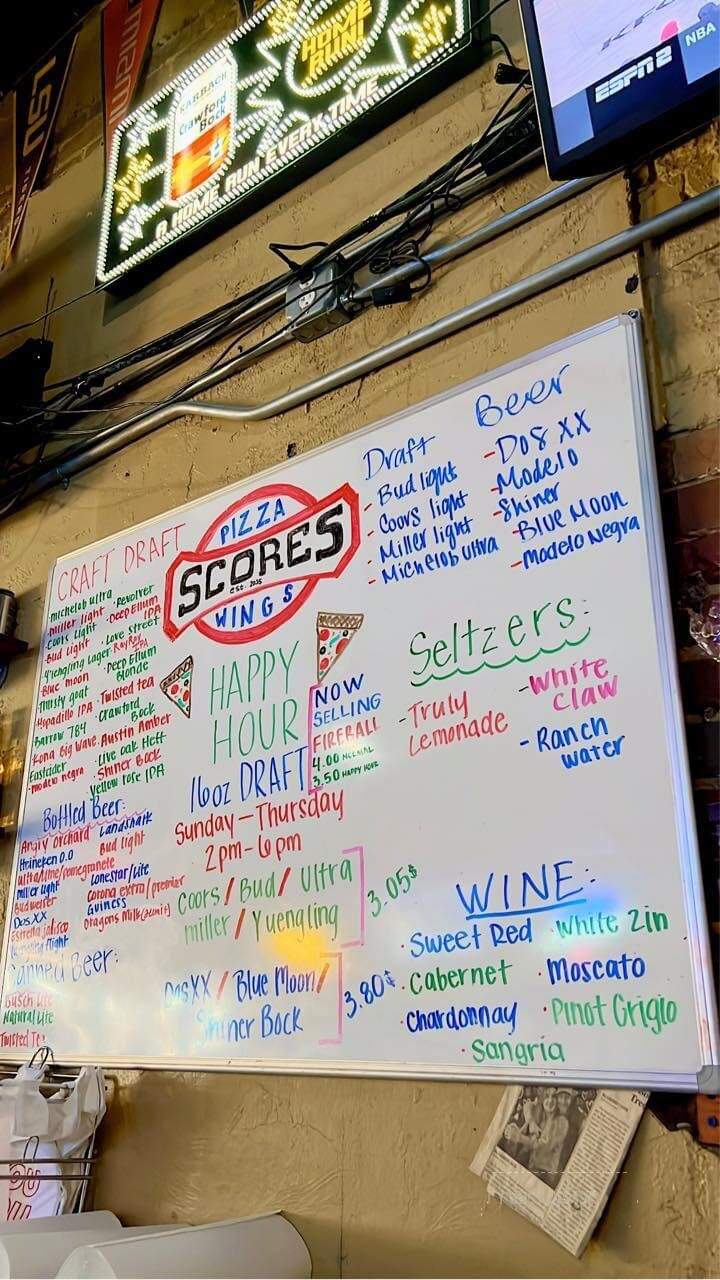 LSU
KARBACH
Crawford
Bock
HOME
RUN!
A HOME RUN EVERY TIME
ESPN2
NBA
CRAFT DRAFT
michelob ultra
miller light
coors light
Bud light
Yuengling Lager
Blue moon
Thirsty goat
Hopadillo IPA
Kona Big Wave
Eastcider
modelo negra
Revolver
Deep Ellum
IPA
Love Street
Deep Ellum
Blonde
Twisted tea
Crawford
Bock
Austin Amber
Live oak Heff
Shiner Bock
Yellow rose IPA
PIZZA
SCORES
WINGS
Draft
- Bud light
- Coors light
- Miller light
- Michelob ultra
Beer
- Dos XX
- Modelo
- Shiner
- Blue Moon
- modelo Negra
HAPPY
HOUR
16oz DRAFT
Sunday - Thursday
2pm-6pm
NOW
SELLING
FIREBALL
4.00 NORMAL
3.50 HAPPY HOUR
Coors / Bud / Ultra
miller / Yuengling
3.05¢
Dos XX / Blue Moon /
Shiner Bock
3.80¢
Seltzers:
- Truly
Lemonade
- White
Claw
- Ranch
water
Bottled Beer:
Angry orchard
Heineken 0.0
miller light
Budweiser
Dos XX
Estrella jalisco
Landshark
Bud light
Lonestar/Lite
corona extra/premier
Guiness
Canned Beer:
Busch Lite
Natural Lite
Twisted Tea
WINE:
· Sweet Red
· White Zin
· Cabernet
· Moscato
· Chardonnay
· Pinot Grigio
· Sangria